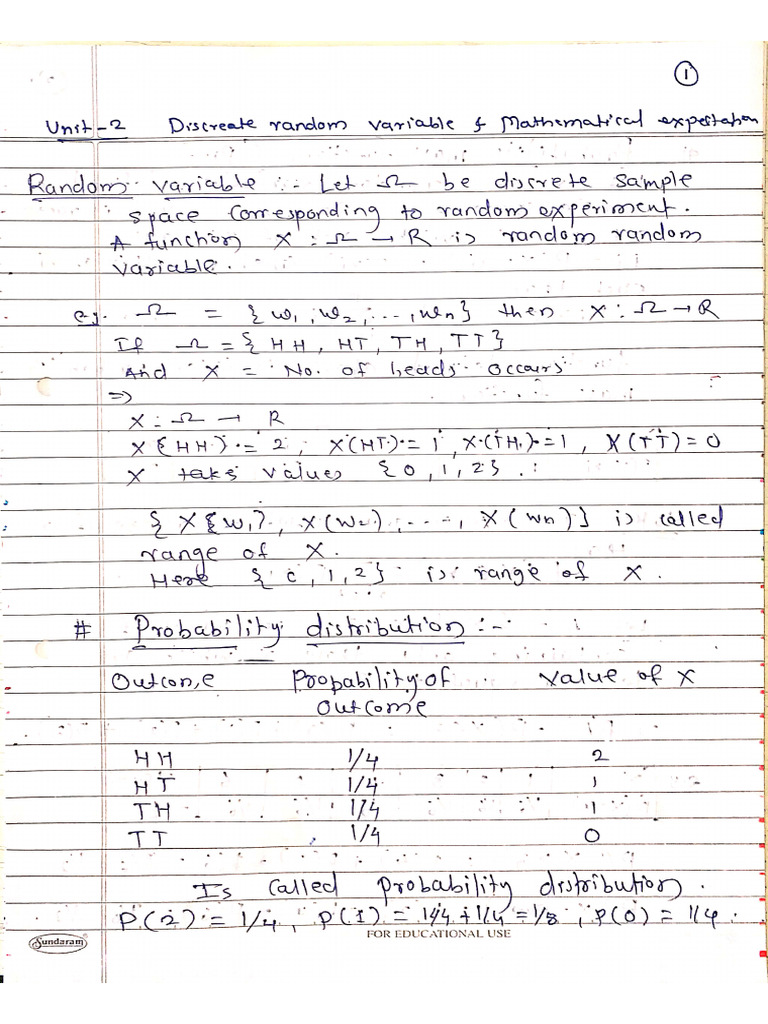 1
Unit-2 Discreate random variable & Mathematical expectation
Random variable :- Let Ω be discrete sample
space corresponding to random experiment.
A function X : Ω → R is random random
variable.
eg. Ω = {w1, w2, ..., wn} then X : Ω → R
If Ω = {HH, HT, TH, TT}
And X = No. of heads occurs
=>
X : Ω → R
X{HH) = 2, X(HT) = 1, X(TH) = 1, X(TT) = 0
X takes values {0, 1, 2}.
{X{w1), X(w2), ...., X(wn)} is called
range of X.
Here {0, 1, 2} is range of X.
# Probability distribution :-
Outcome Probability of Value of X
Outcome
HH 1/4 2
HT 1/4 1
TH 1/4 1
TT 1/4 0
Is called probability distribution.
P(2) = 1/4, P(1) = 1/4+1/4 = 1/8, P(0) = 1/4.
Sundaram FOR EDUCATIONAL USE